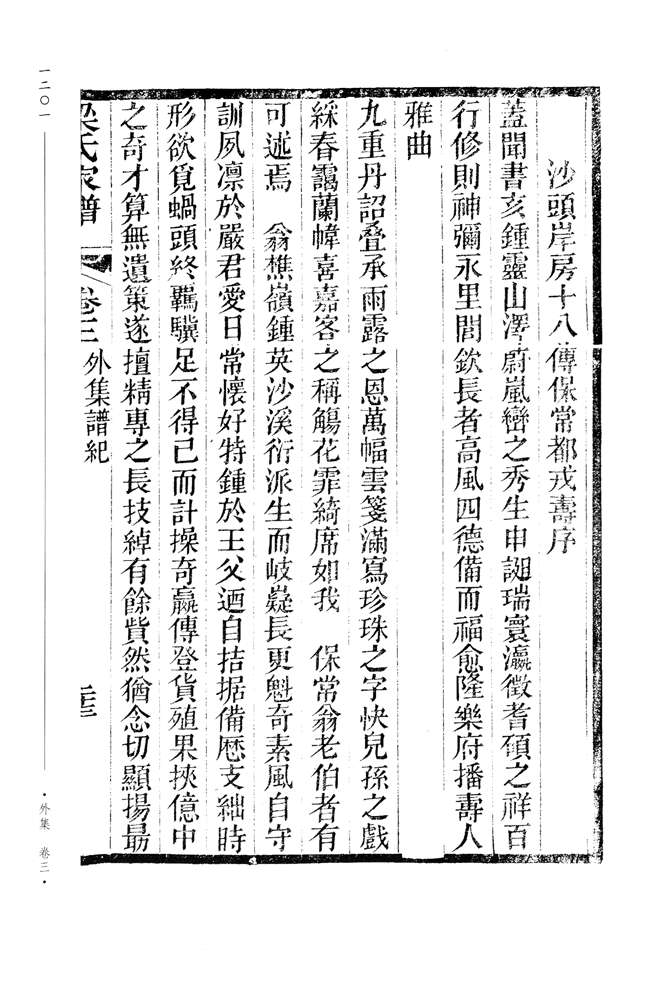 沙頭岸房十八傳保常都戎壽序
蓋聞書亥鍾靈山澤蔚嵐巒之秀生申誕瑞寰瀛徵耆碩之祥百
行修則神彌永里閭欽長者高風四德備而福愈隆樂府播壽人
雅曲
九重丹詔叠承雨露之恩萬幅雲箋滿寫珍珠之字快兒孫之戲
綵春靄蘭幃喜嘉客之稱觴花霏綺席如我　保常翁老伯者有
可述焉　翁樵嶺鍾英沙溪衍派生而岐嶷長更魁奇素風自守
訓夙凛於嚴君愛日常懷好特鍾於王父迺自拮据備厯支絀時
形欲覓蝸頭終羈驥足不得已而計操奇嬴傳登貨殖果挾億中
之奇才算無遺策遂擅精專之長技綽有餘貲然猶念切顯揚最
梁氏家譜　卷三　外集譜紀　二十三
一二〇一
・外集　卷三・